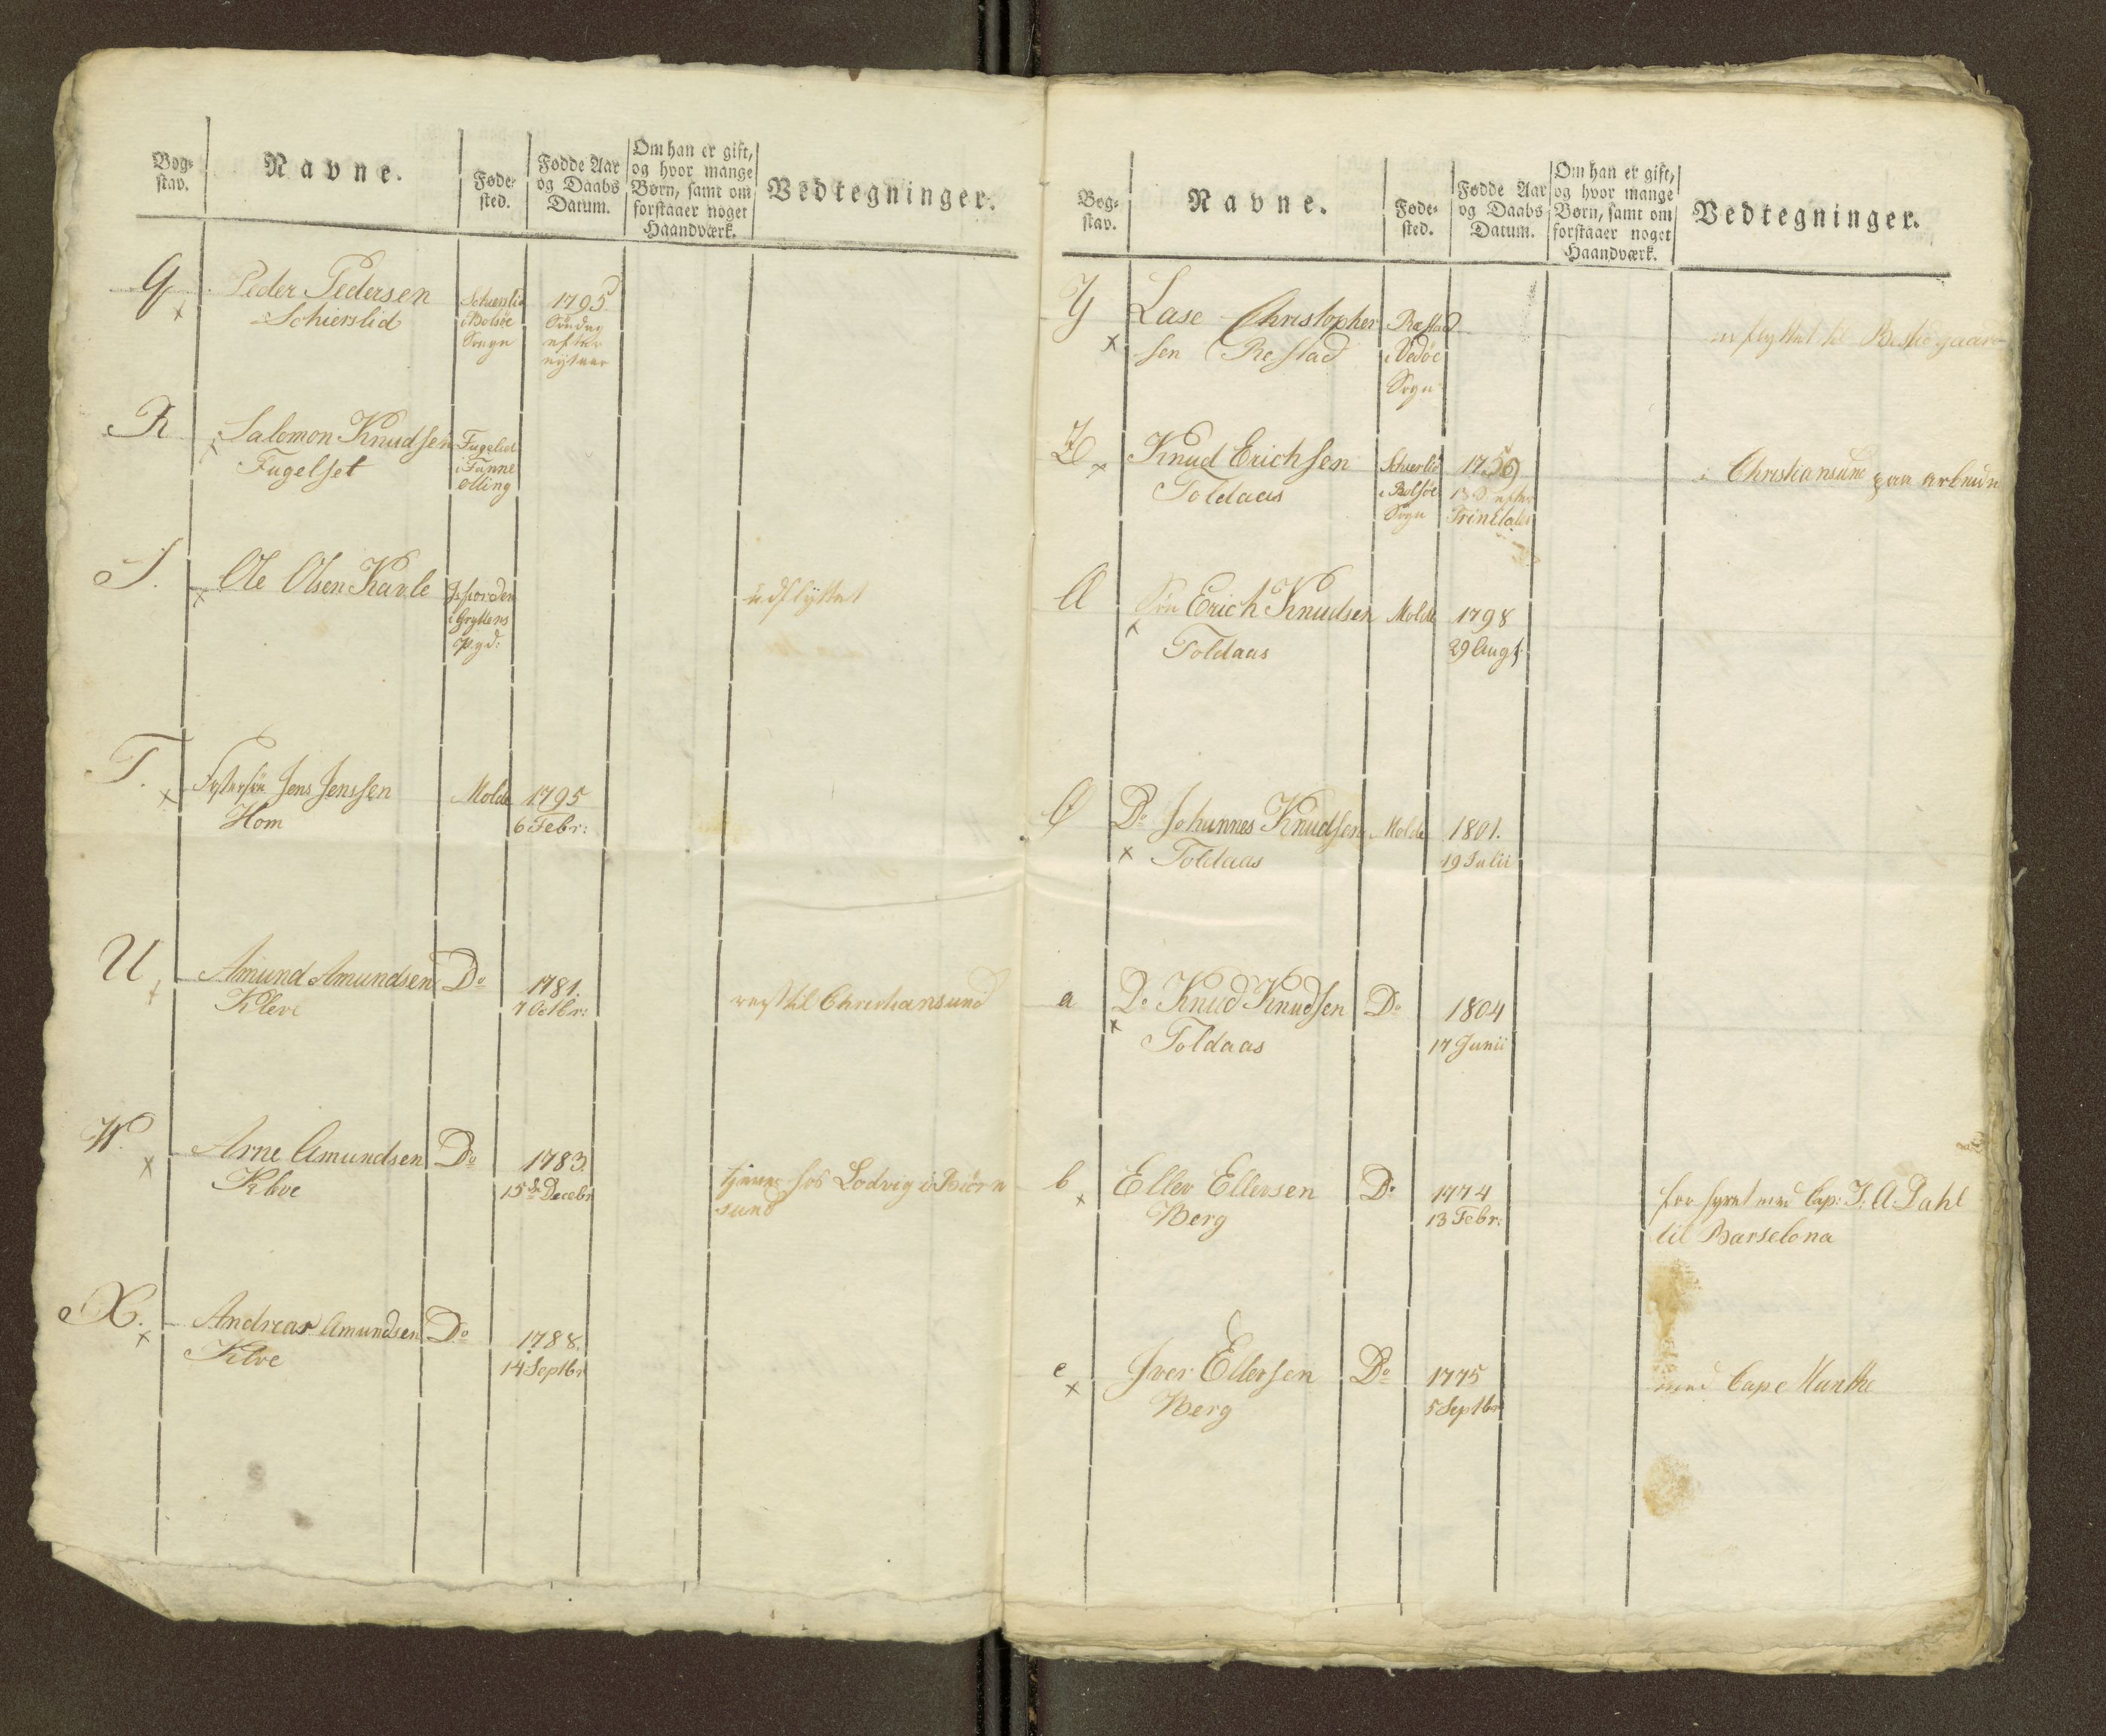 Bog-
stav.
Navne.
Føde-
sted.
Fødde Aar
og Daabs
Datum.
Om han er gift,
og hvor mange
Børn, samt om
forstaaer noget
Haandværk.
Vedtegninger.
Q
Peder Pedersen
Schierslid
Schierslid
i Bolsöe
Sogn
1795
Söndag
efter
nytaar
R
Salomon Knudsen
Fugelset
Fugelset
i Fanne
otting
S.
Ole Olsen Kavle
Isfjorden
i Gryttens
Pgd:
udflyttet
T.
Jens Jenssen
Hom
Molde
1795
6 Febr:
U
Amund Amundsen
Kleve
Do
1781.
7 Octbr:
rejst til Christiansund
W.
Arne Amundsen
Kleve
Do
1783.
15de Decebr
tjener hos Lodvig i Biörn
sund
X.
Andreas Amundsen
Kleve
Do
1788.
14 Septbr
Bog-
stav.
Navne.
Føde-
sted.
Fødde Aar
og Daabs
Datum.
Om han er gift,
og hvor mange
Børn, samt om
forstaaer noget
Haandværk.
Vedtegninger.
Y
Lase Christopher
sen Restad
Ræstad
i Vedöe
Sogn
er flyttet til
Z
Knud Erichsen
Toldaas
Schierlid
i Bolsöe
Sogn
1756
13 S. efter
Trinitatis
i Christiansund paa arbeide
A
Sön Erich Knudsen
Toldaas
Molde
1798
29 Augt:
Do Johannes Knudsen
Toldaas
Molde
1801.
19 Julii
a
Do Knud Knudsen
Toldaas
Do
1804
17 Junii
b
Eller Ellersen
Berg
Do
1774
13 Febr:
forhyret med Cap: J: A Dahl
til Barselona
c
Iver Ellersen
Berg
Do
1775
5 Septbr
med Cap Munthe